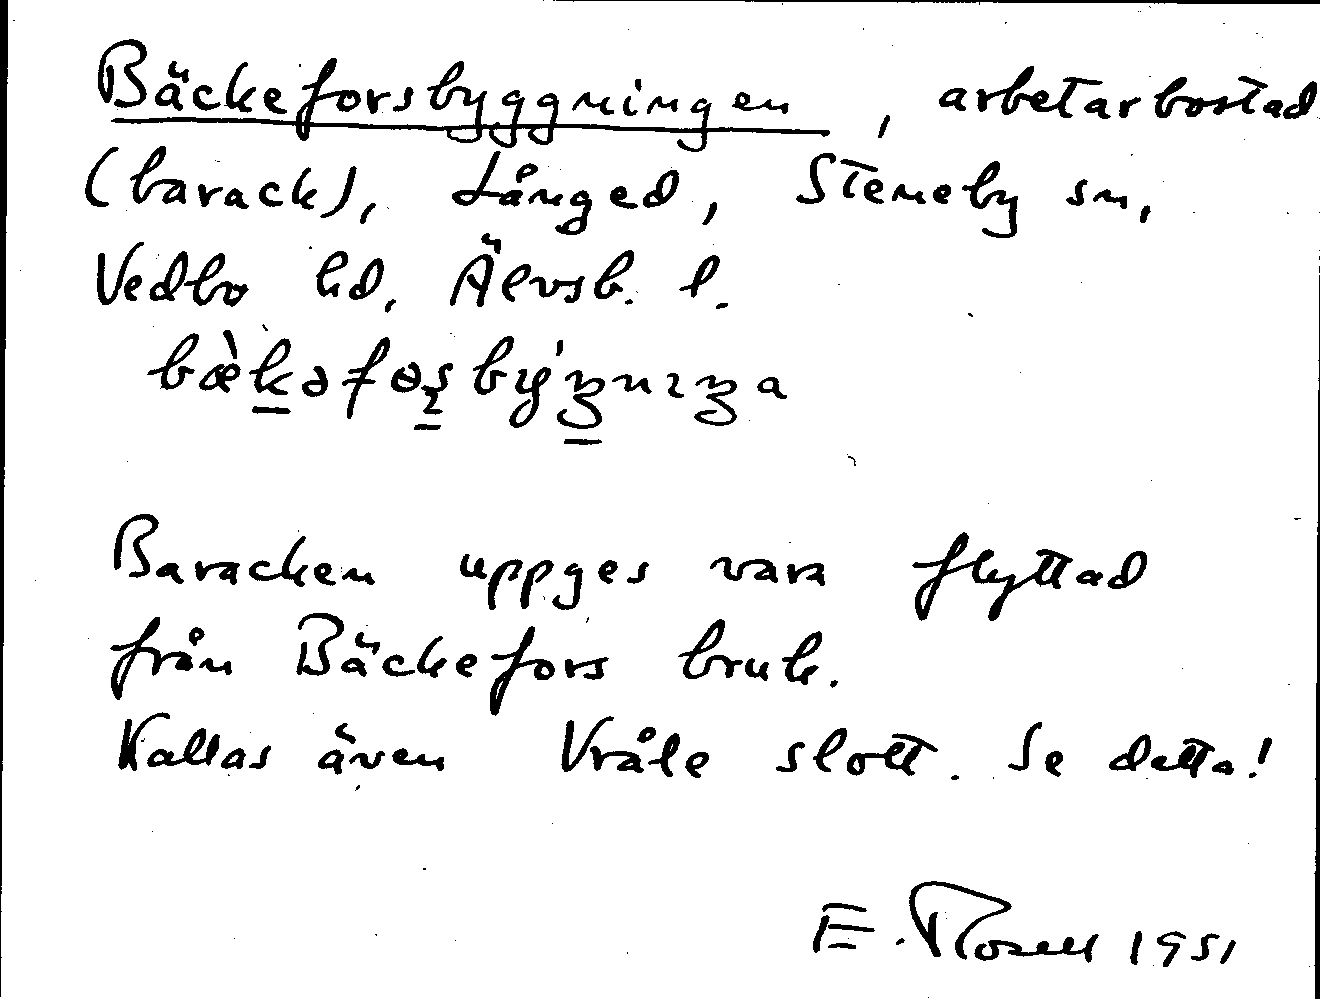 Bäckeforsbyggningen, arbetarbostad
(barack), Långed, Steneby sn,
Vedbo hd, Älvsb. l.
Baracken uppges vara flyttad
från Bäckefors bruk.
Kallas även Vråle slott. Se detta!
E. Rosell 1951